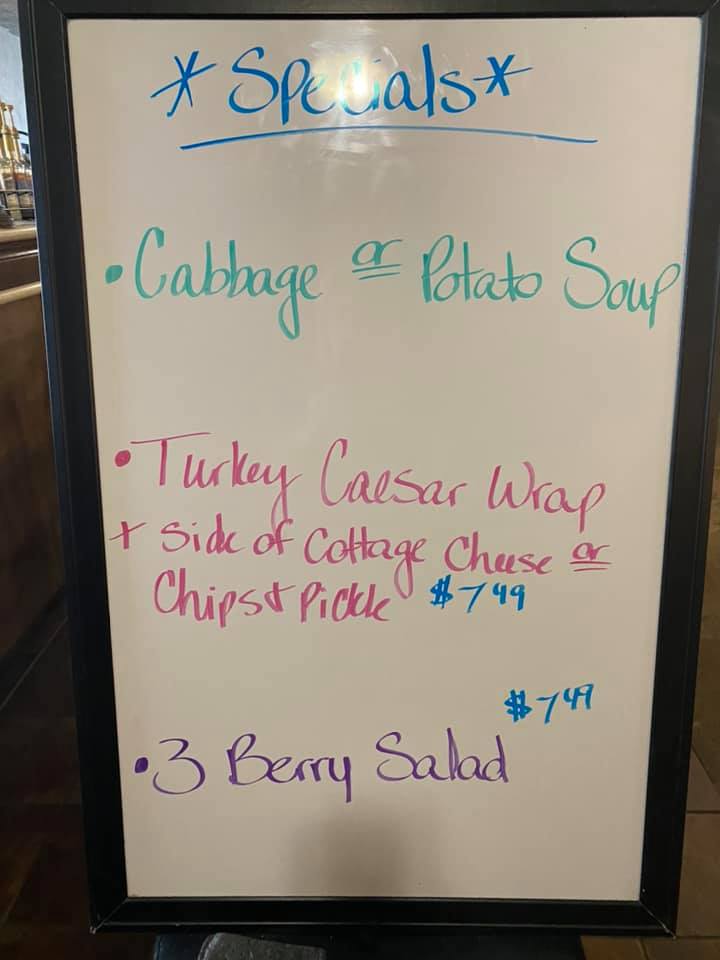 *Specials*
• Cabbage or Potato Soup
• Turkey Caesar Wrap
+ Side of Cottage Cheese or
Chips & Pickle $7 49
$7 49
• 3 Berry Salad